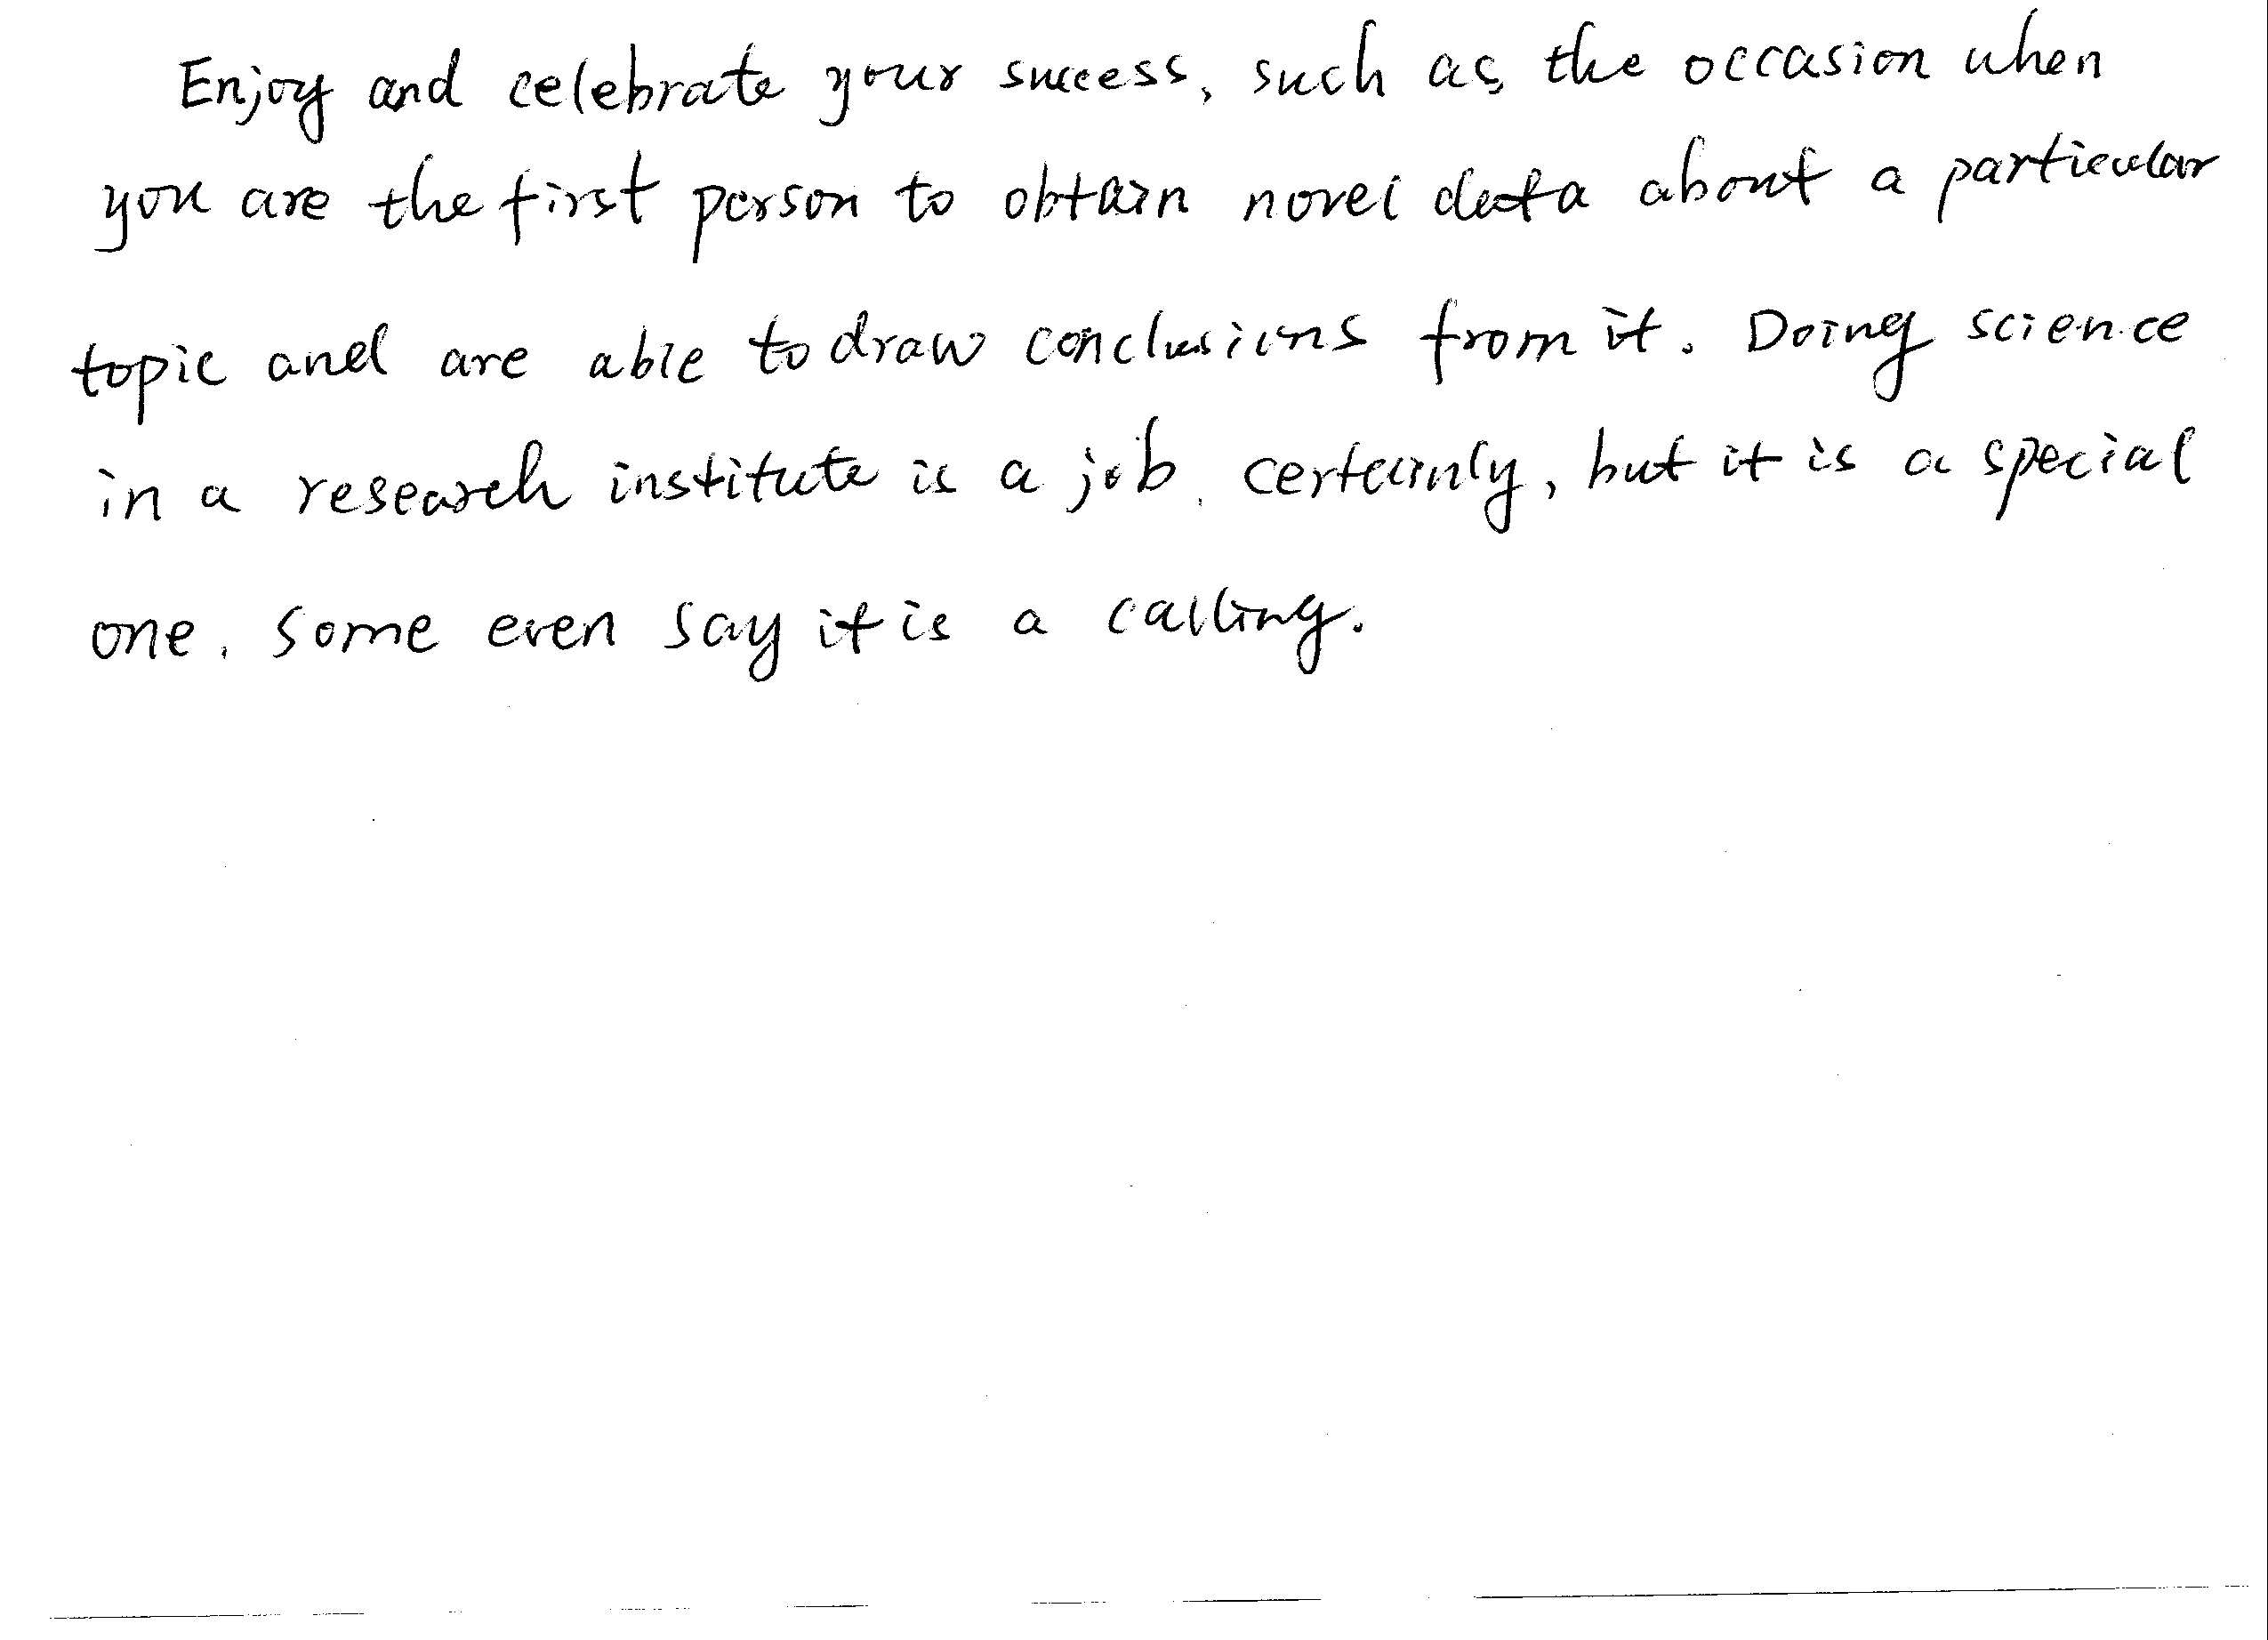 Enjoy and celebrate your success, such as the occasion when
you are the first person to obtain novel data about a particular
topic and are able to draw conclusions from it. Doing science
in a research institute is a job, certainly, but it is a special
one, some even say it is a calling.